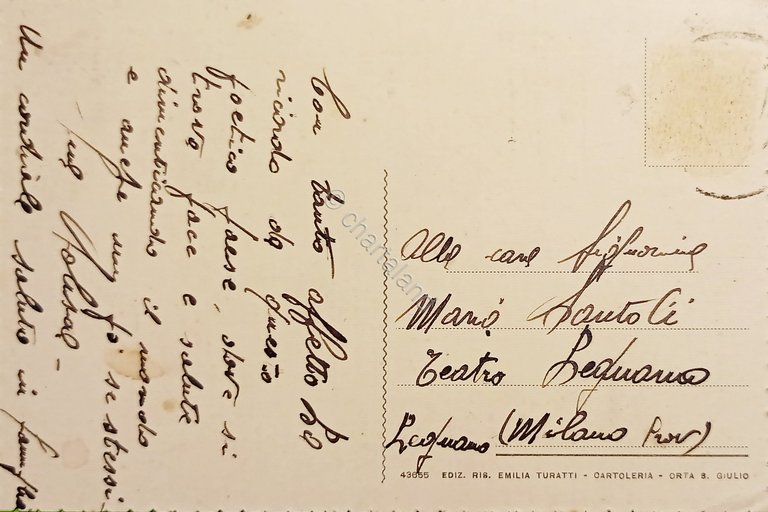 Con tanto affetto Le
ricordo da questo
poetico paese, dove si
trova pace e salute
dimenticando il mondo
e anche un po' se stessi,
Un cordiale saluto in famiglia
Alla cara Signorina
Maria Santoli
Teatro Legnano
Legnano (Milano Prov)
43655 EDIZ. RIS. EMILIA TURATTI - CARTOLERIA - ORTA S. GIULIO
© chartaland